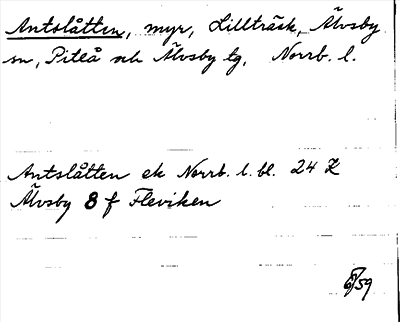 Antslåtten, myr, Lillträsk, Älvsby
sn, Piteå och Älvsby tg, Norrb. l.
Antslåtten ek Norrb. l. bl. 24 K
Älvsby 8 f Fleviken
/59